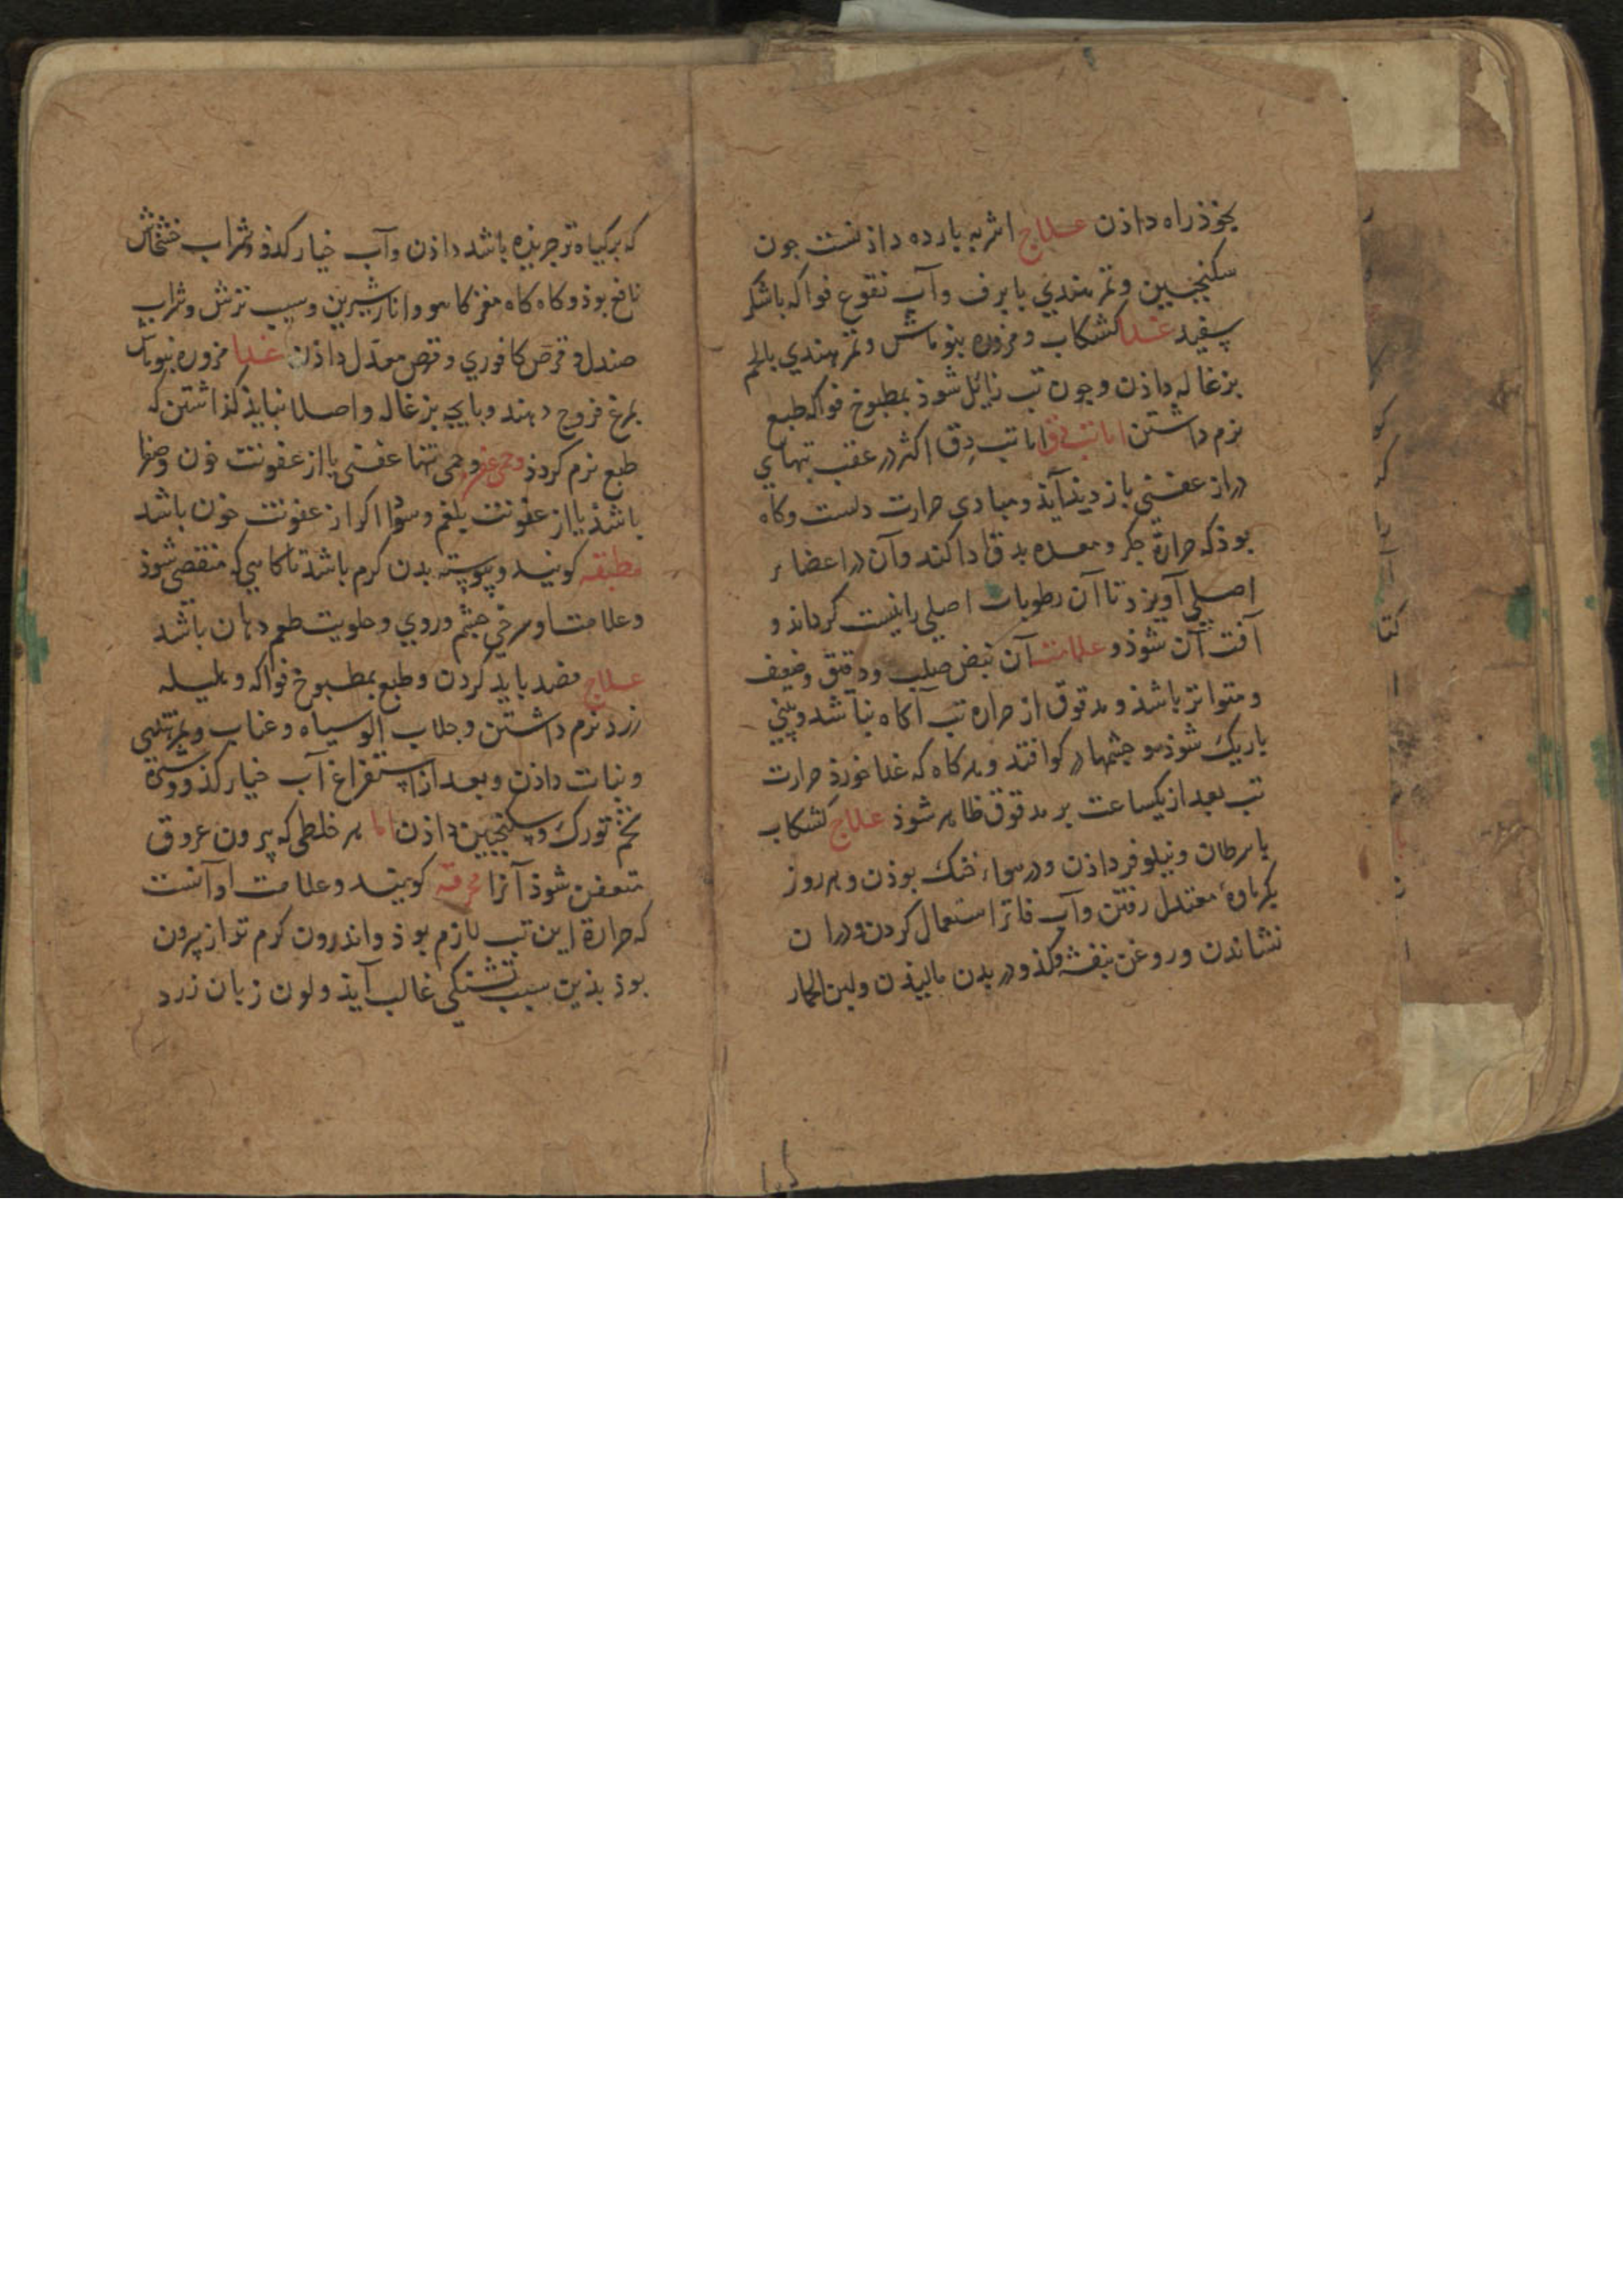 بخوذ راه داذن علاج اشربه بارده داذنست جون
سکنجبین و تمر هندي با برف و آب نقوع فواکه باشکر
سپفید غذا کشکاب و مزوره بنو ماش و تمر هندي بالحم
بزغاله داذن و جون تب زایل شوذ بمطبوخ فواکه طبع
نرم داشتن اما تب دق اما تب دق اکثر در عقب تبهاي
دراز عفنی باز دیذ آیذ و مبادی حرارت دلست و کاه
بوذ که حرارة جکر و معده بدق ادا کند و آن در اعضاء
اصلی آویزد تا آن رطوبات اصلی را نیست کرداند و
آفت آن شوذ و علامت آن نبض صلب و دقیق و ضعیف
و متواتر باشذ و مدقوق از حراره تب آکاه نباشد و بینی
باریک شوذ و جشمها در کو افتد و هرکاه که غذا خورذ حرارت
تب بعد از یکساعت بر مدقوق ظاهر شوذ علاج کشکاب
با سرطان و نیلوفر داذن و در هواء خنک بوذن و هر روز
بکرماوهٔ معتدل رفتن و آب فاتر استعمال کردن و در ان
نشاندن و روغن بنفشه و کذو در بدن مالیذن و لبن الحمار
که بر کیاه تر جریذه باشد داذن و آب خیار کذو و شراب خشخاش
نافع بوذ و کاه کاه مغز کاهو و انار شیرین و سیب ترش و شراب
صندل و قرص کافوري و قرص معتدل داذن غذا مزوره بنوماش
بمرغ فروج دهند و باجه بزغاله و اصلا نبایذ کذاشتن که
طبع نرم کردذ و حمی تنها عفنی یا از عفونت خون و صفرا
باشذ یا از عفونت بلغم و سودا اکر از عفونت خون باشد
مطبقه کویند و پیوسته بدن کرم باشد تا کاهي که منقضي شوذ
و علامت او سرخي جشم و روي و حلویت طعم دهان باشد
علاج فصد باید کردن و طبع بمطبوخ فواکه و هلیله
زرد نرم داشتن و جلاب الو سیاه و عناب و تمر هندي
و نبات داذن و بعد از استفراغ آب خیار کذو و شیرة
تخم تورک و سکنجبین داذن اما هر خلطی که بیرون عروق
متعفن شوذ آنرا محرقه کویند و علامت او آنست
که حرارة این تب لازم بوذ و اندرون کرم تر از بیرون
بوذ بذین سبب تشنکی غالب آیذ و لون زبان زرد